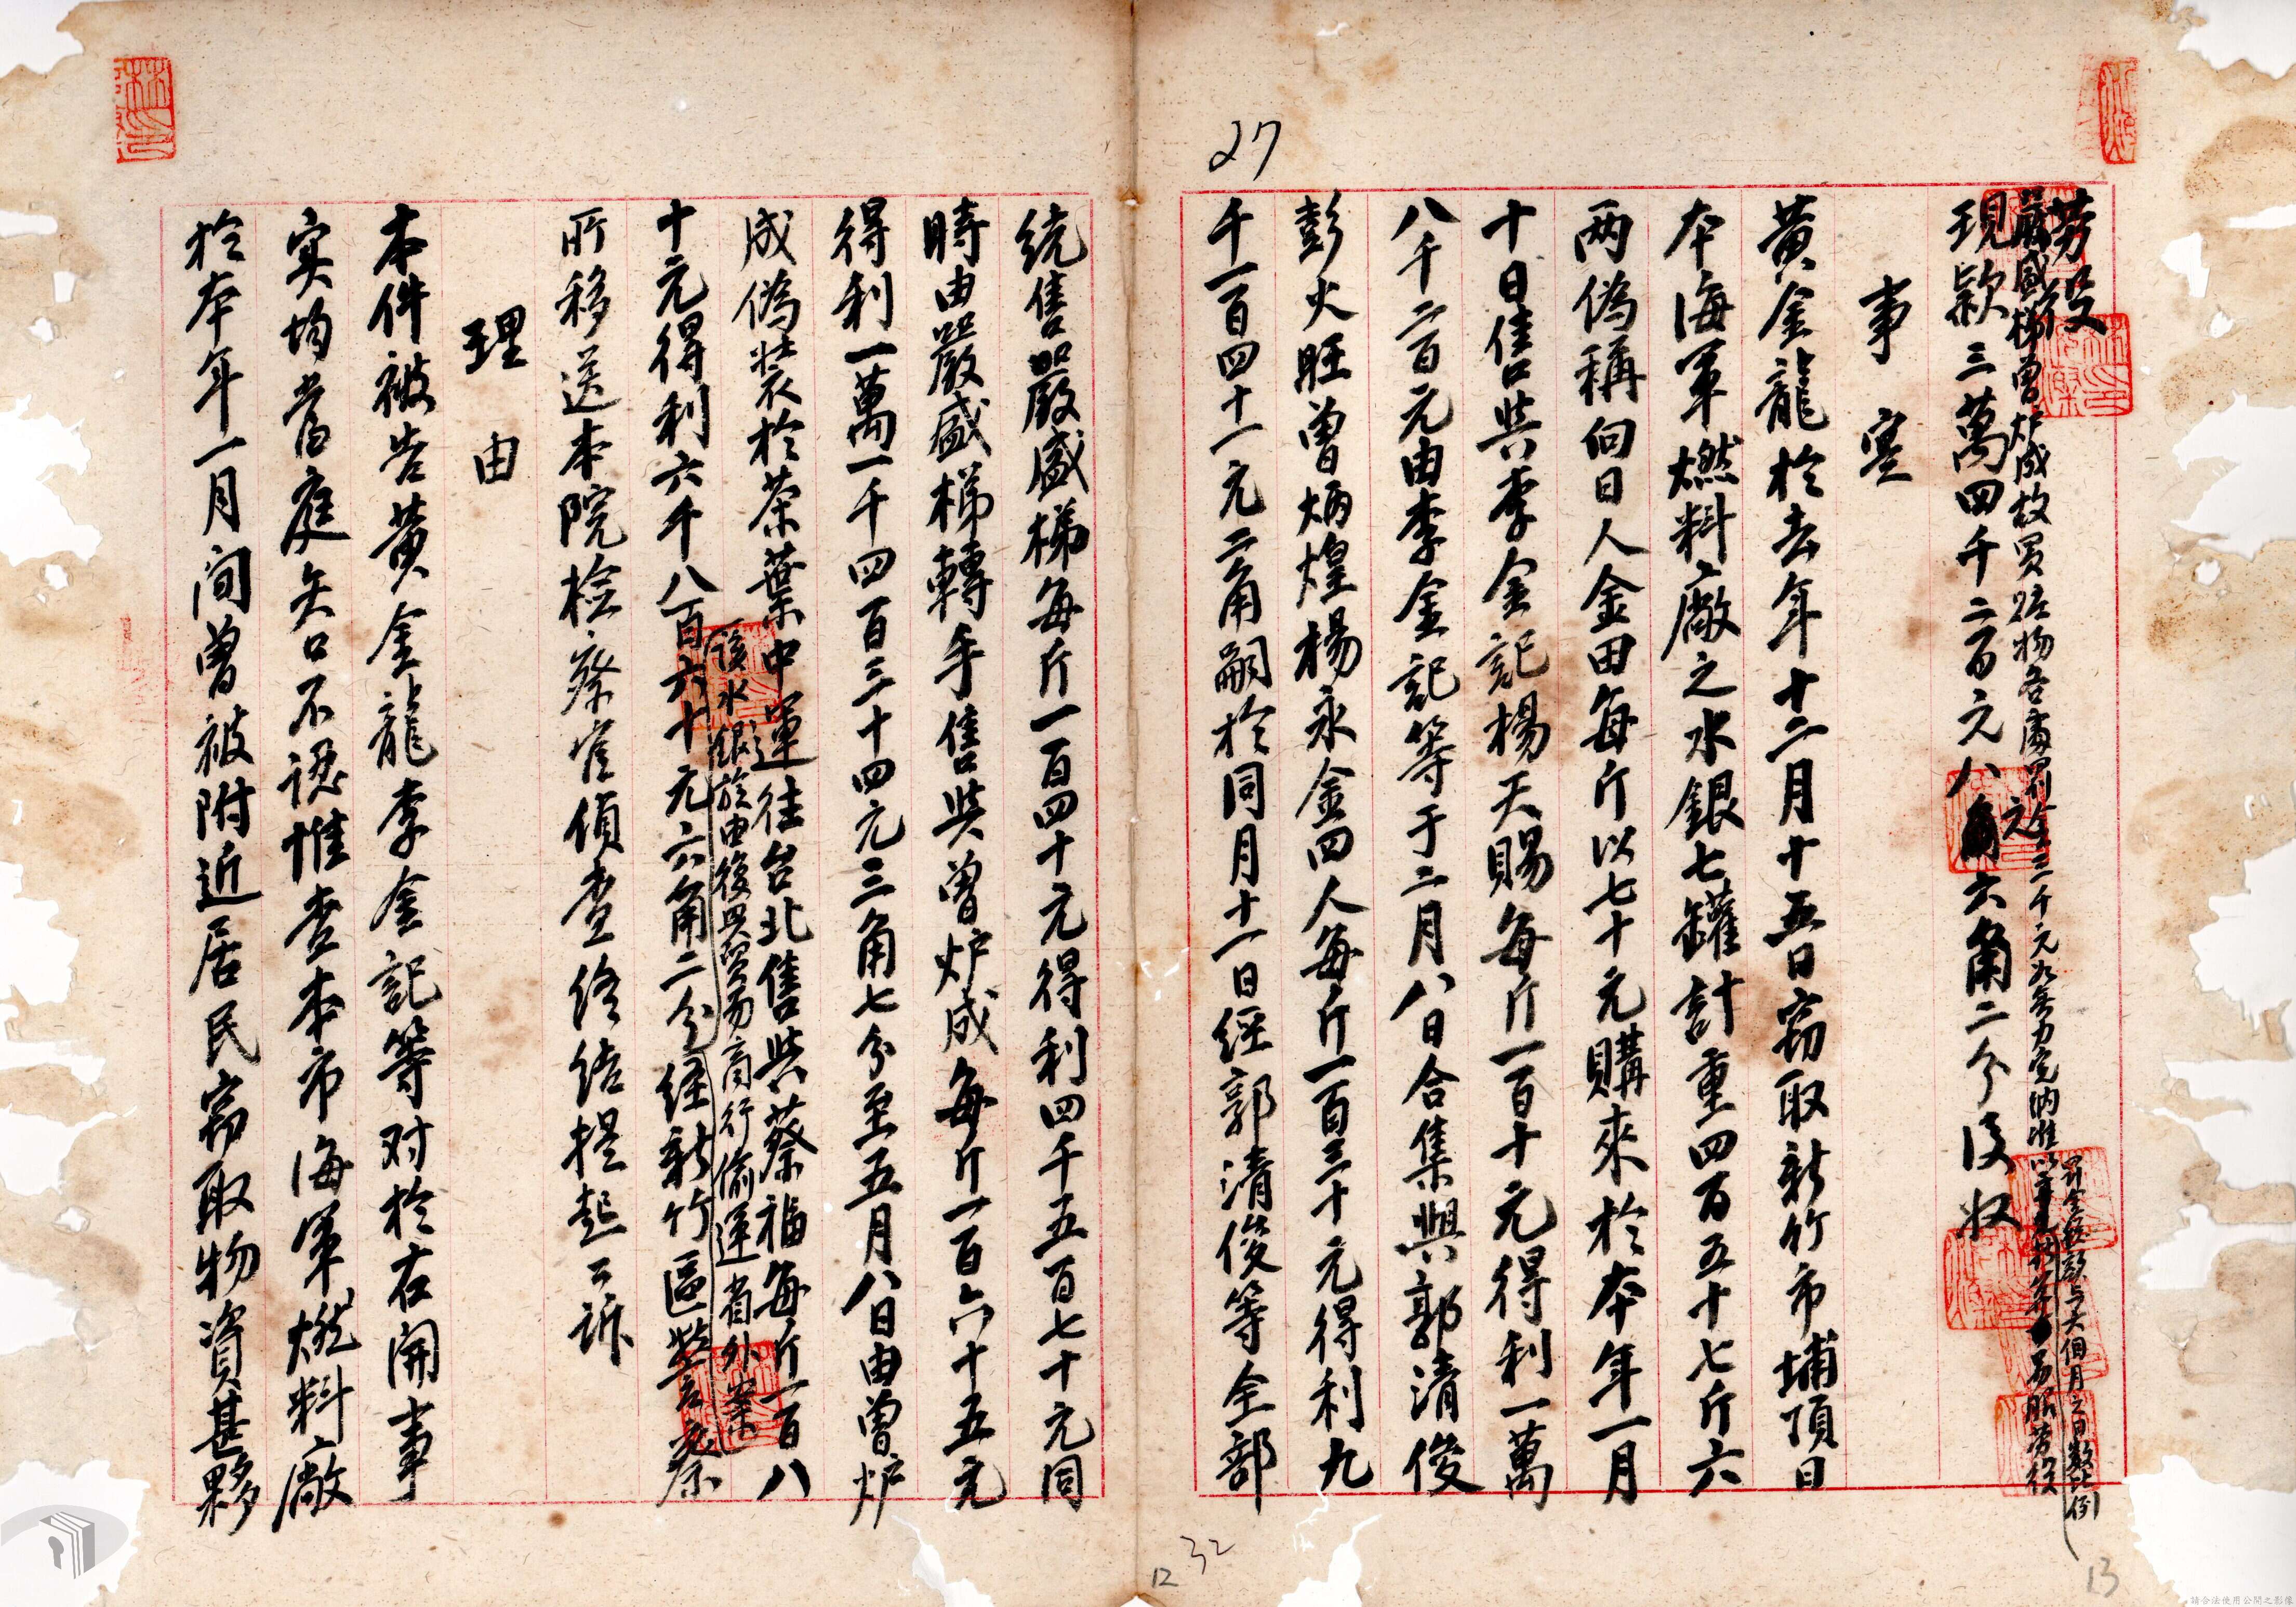 27
勞役
嚴盛梯曾炉成故買贓物各處罰金三千元如無力完納准以罰金總額與六個月之日數比例易服勞役
現款三萬四千二百元八角六分二分沒收
事實
黃金龍於去年十二月十五日竊取新竹市埔頂日
本海軍燃料廠之水銀七罐計重四百五十七斤六
兩偽稱向日人金田每斤以七十元購來於本年一月
十日售與李金記楊天賜每斤一百十元得利一萬
八千二百元由李金記等于二月八日合集與郭清俊
彭火旺曾炳煌楊永金四人每斤一百三十元得利九
千一百四十一元二角嗣於同月十一日經郭清俊等全部
統售嚴盛梯每斤一百四十元得利四千五百七十元同
時由嚴盛梯轉手售與曾炉成每斤一百六十五元
得利一萬一千四百三十四元三角七分至五月八日由曾炉
成偽裝於茶葉中運往台北售與蔡福每斤一百八
十元得利六千八百六十元六角二分該水銀旋由後與貿易商行偷運省外案經新竹區監察
所移送本院檢察官偵查終結提起公訴
理由
本件被告黃金龍李金記等对於右開事
実均當庭矢口不認惟查本市海軍燃料廠
於本年一月间曾被附近居民竊取物資甚夥
32
12
13
請合法使用公開之影像